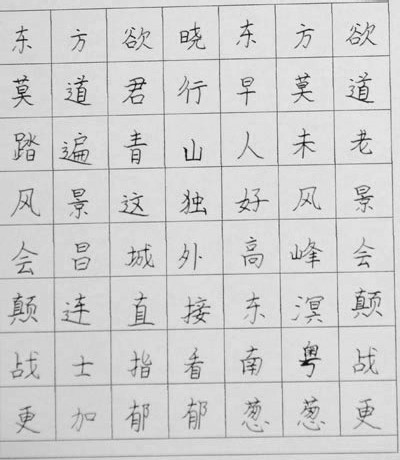 东方欲晓东方欲
莫道君行早莫道
踏遍青山人未老
风景这独好风景
会昌城外高峰会
颠连直接东溟颠
战士指看南粤战
更加郁郁葱葱更